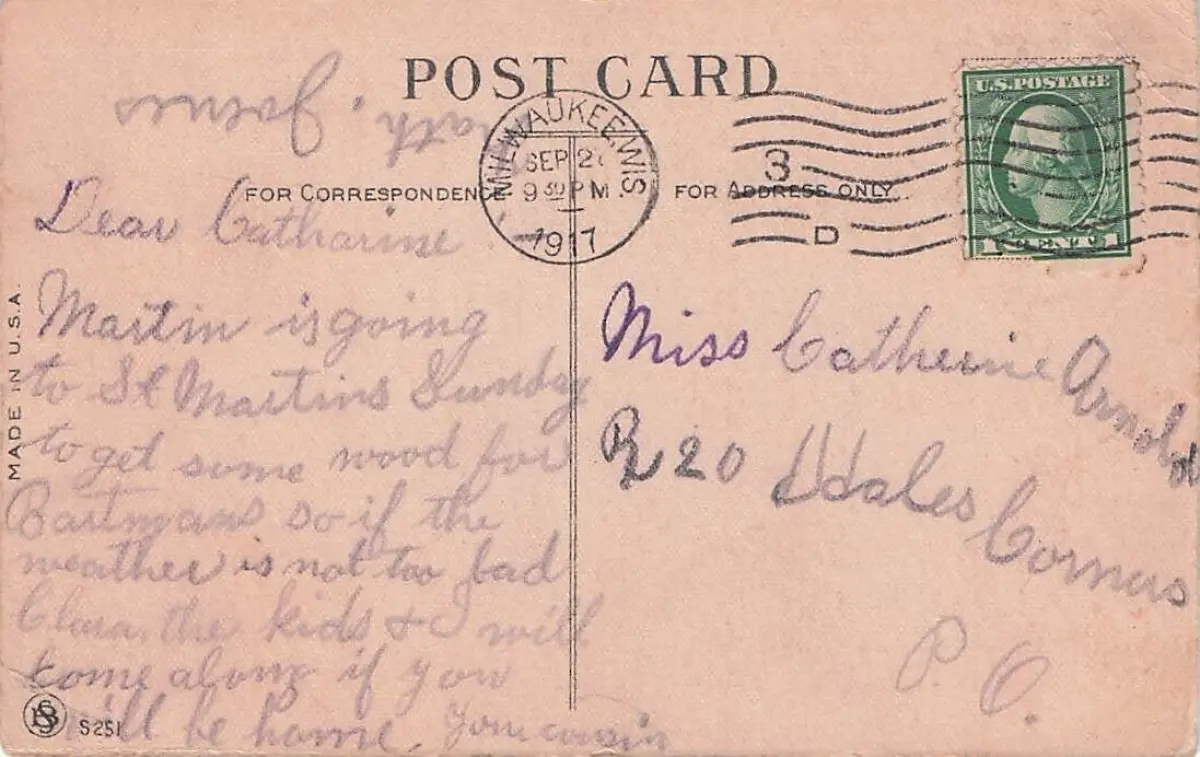 POST CARD
FOR CORRESPONDENCE
FOR ADDRESS ONLY
MILWAUKEE, WIS.
SEP 2
9 30 PM
1917
3
D
U.S. POSTAGE
1 CENT 1
Dear Catharine
Martin is going
to St Martins Sunday
to get some wood for
so if the
weather is not too bad
Clara, the kids & I will
come along if you
will be home. Your cousin
Miss Catherine Arnold
R 20 Hales Corners
P. O.
MADE IN U.S.A.
S 251